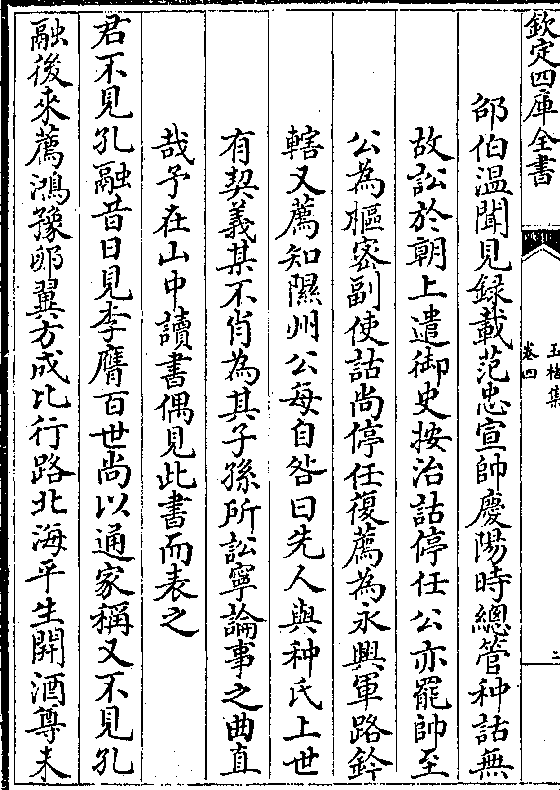 欽定四庫全書
玉楮集
卷四
二
邵伯温聞見録載范忠宣帥慶陽時總管种詁無
故訟於朝上遣御史按治詁停任公亦罷帥至
公為樞密副使詁尚停任復薦為永興軍路鈐
轄又薦知隰州公每自咎曰先人與种氏上世
有契義某不肖為其子孫所訟寧論事之曲直
哉予在山中讀書偶見此書而表之
君不見孔融昔日見李膺百世尚以通家稱又不見孔
融後來薦鴻豫郎翼方成比行路北海平生開酒尊未